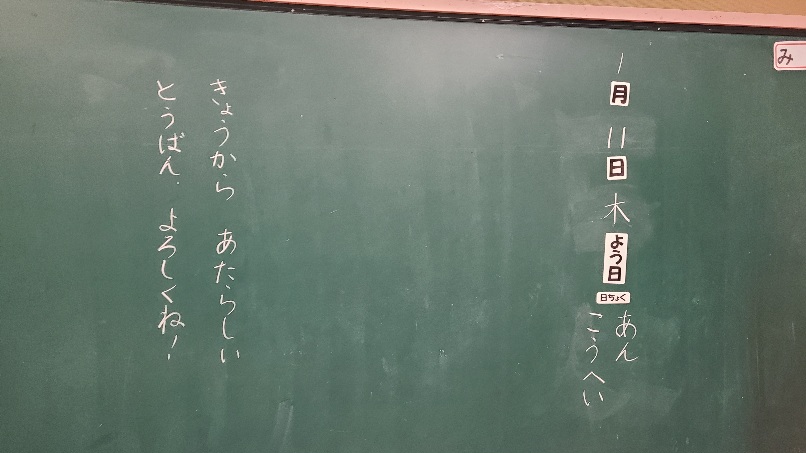 み
1月11日木よう日
日ちょく
あん
こうへい
きょうから あたらしい
とうばん. よろしくね!